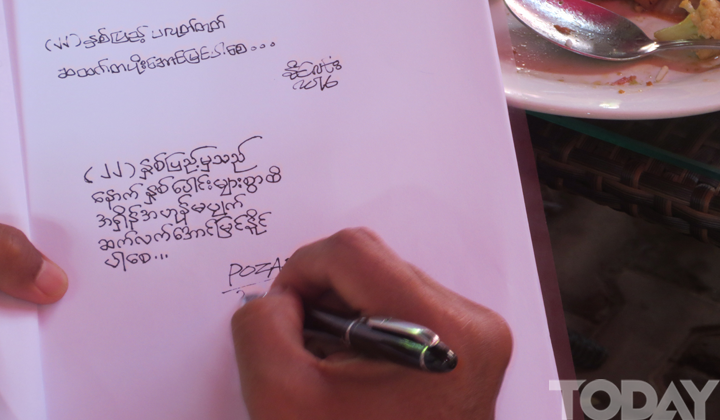 (၂၂) နှစ်ပြည့် ပလုတ်တုတ်
ဆထက်တပိုးအောင်မြင်ပါစေ...
(၂၂) နှစ်ပြည့်မှသည်
နောက် နှစ်ပေါင်းများစွာထိ
အရှိန်အဟုန်မပျက်
ဆက်လက်အောင်မြင်နိုင်
ပါစေ...
POZA
TODAY